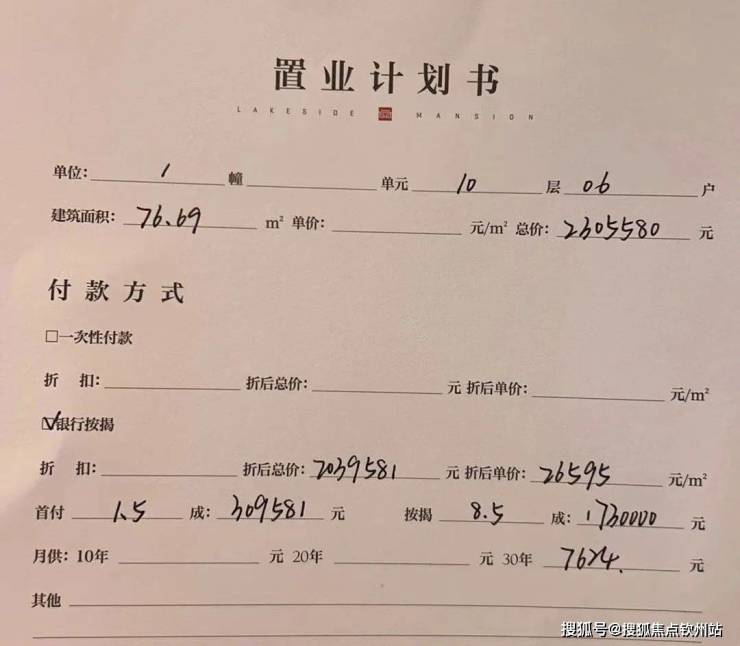 置业计划书
LAKESIDE MANSION
单位: 1 幢 单元 10 层 06 户
建筑面积: 76.69 m² 单价: 元/m² 总价: 2305580 元
付款方式
□一次性付款
折 扣: 折后总价: 元 折后单价: 元/m²
☑银行按揭
折 扣: 折后总价: 2039581 元 折后单价: 26595 元/m²
首付 1.5 成: 309581 元 按揭 8.5 成: 1730000 元
月供: 10年 元 20年 元 30年 7624. 元
其他
搜狐号@搜狐焦点钦州站